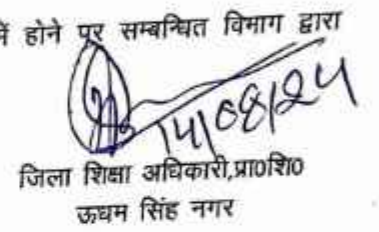 में होने पर सम्बन्धित विभाग द्वारा
14/08/24
जिला शिक्षा अधिकारी,प्रा0शि0
ऊधम सिंह नगर